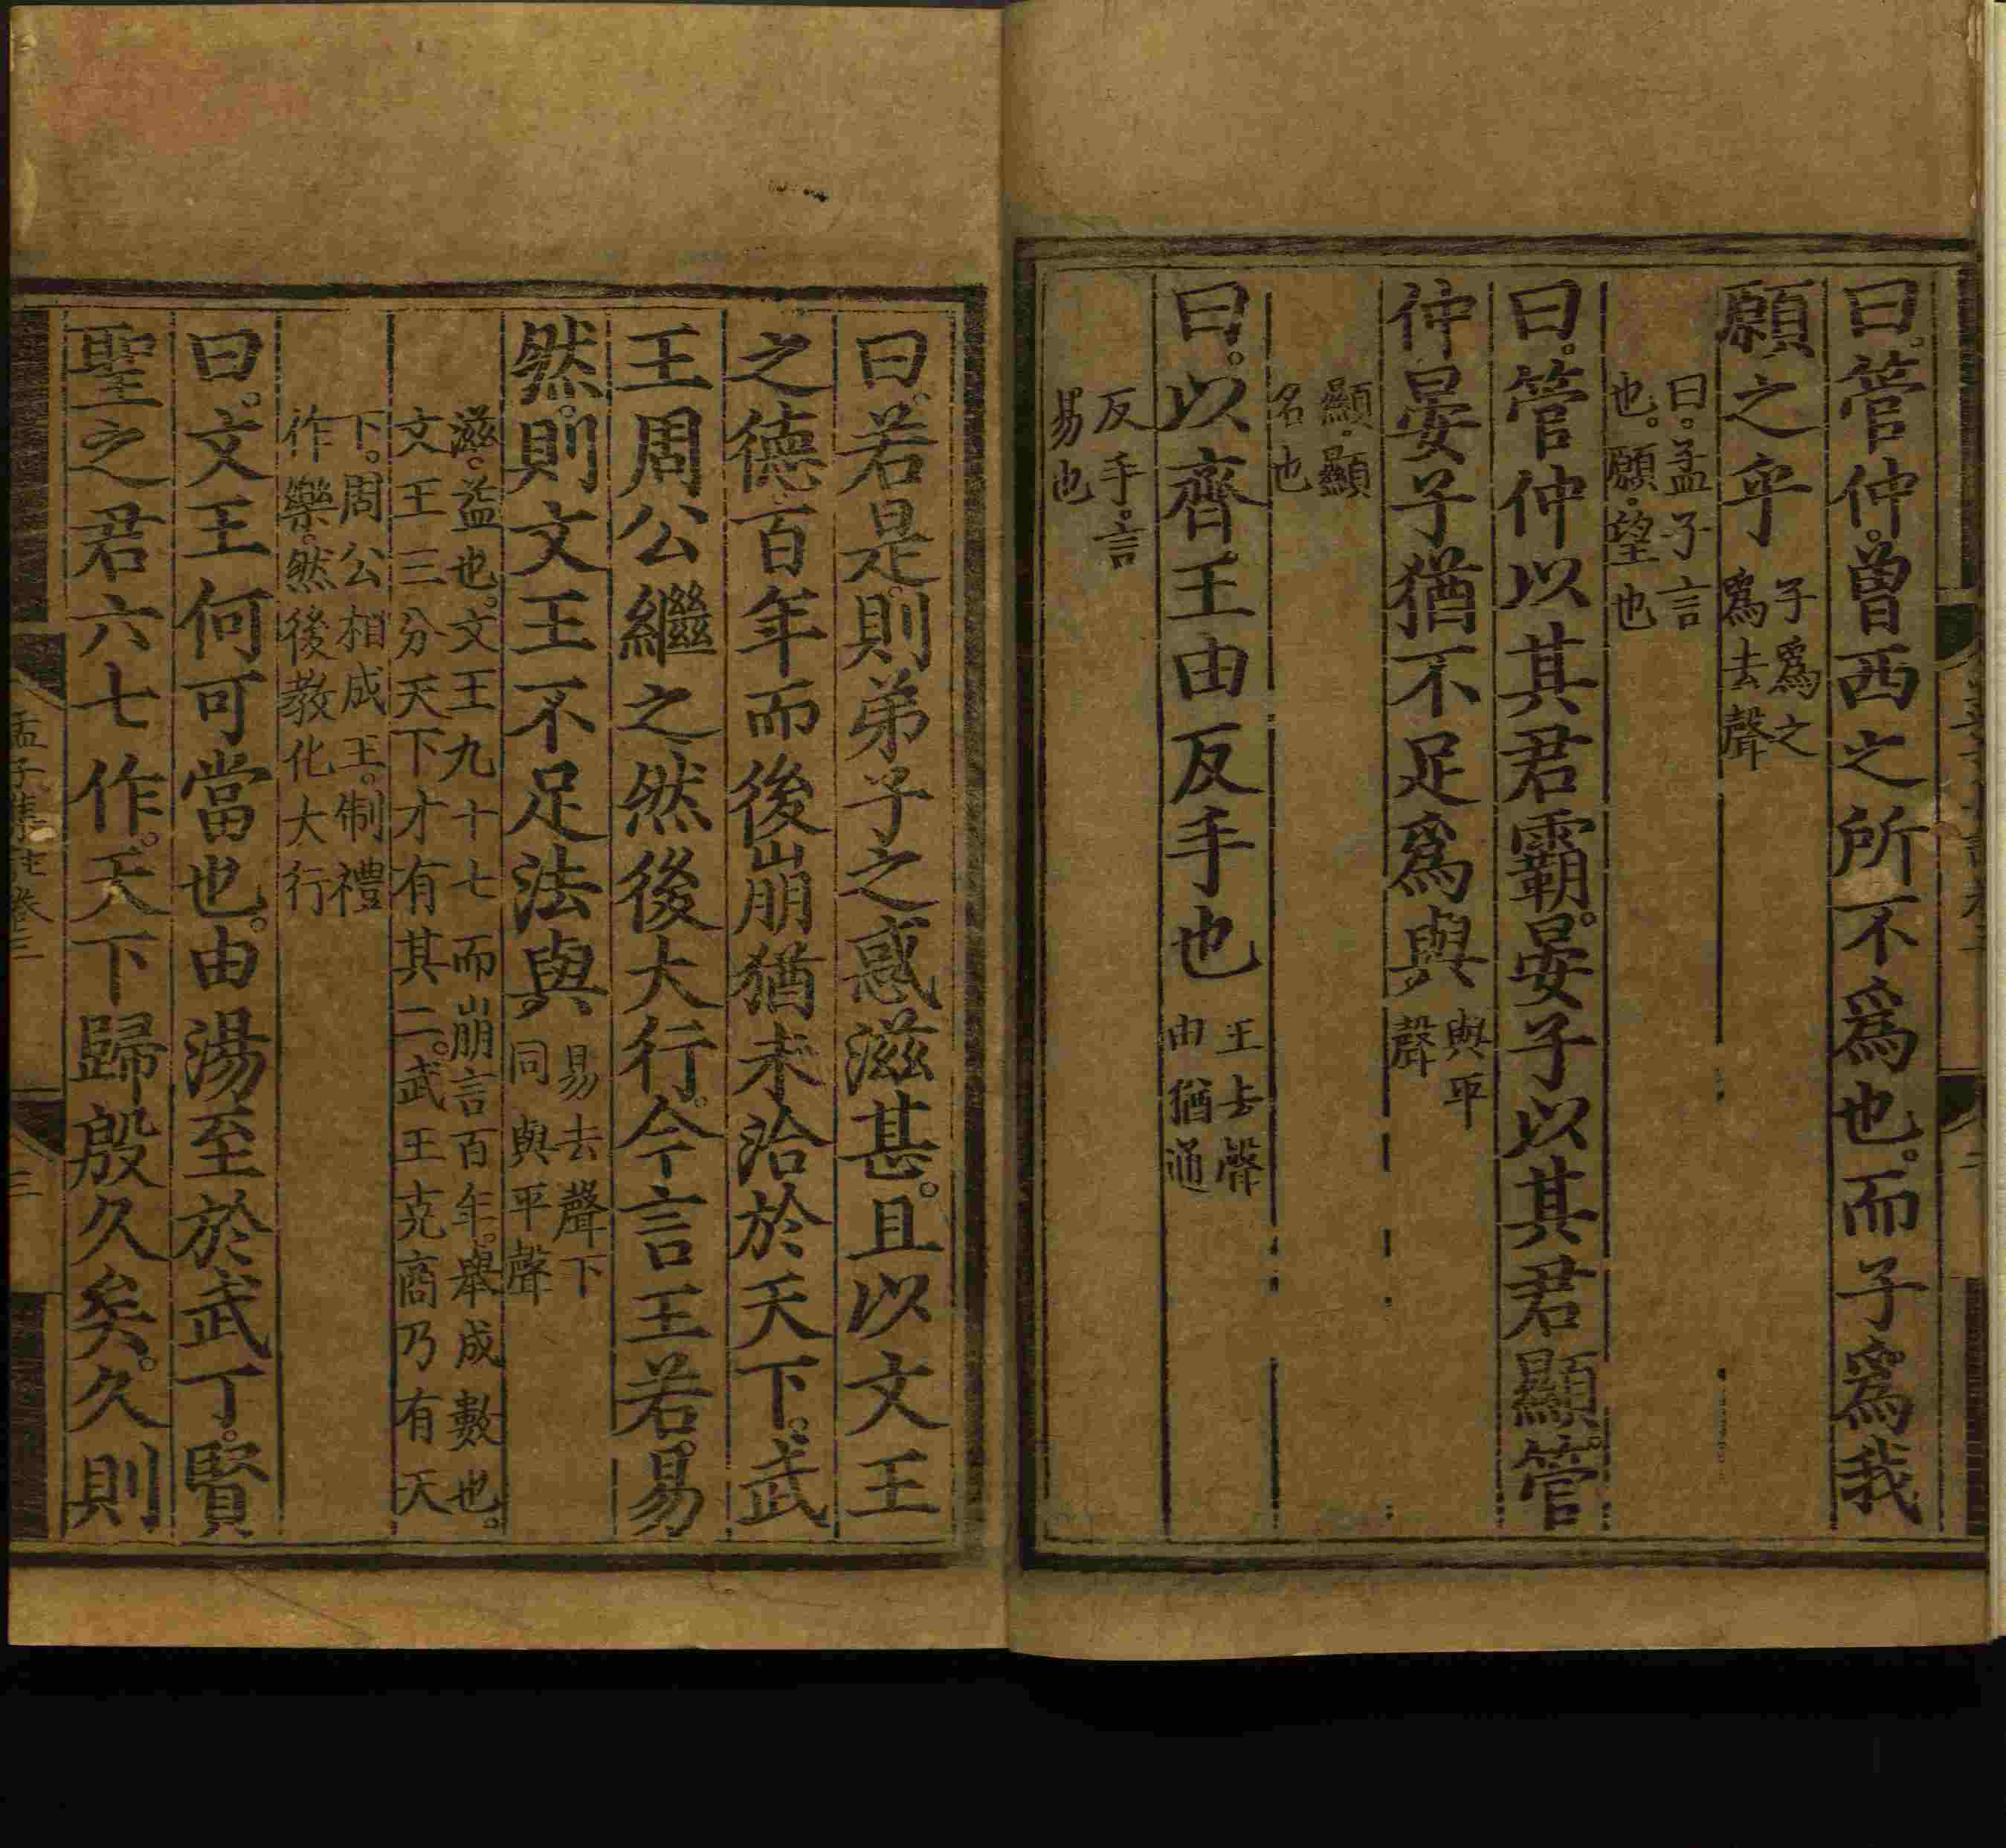 曰。管仲。曾西之所不爲也。而子爲我
願之乎
子爲之
爲去聲
曰。孟子言
也。願。望也
曰。管仲以其君霸。晏子以其君顯。管
仲晏子猶不足爲與
與平
聲
顯。顯
名也
曰。以齊王由反手也
王去聲
由猶通
反手。言
易也
曰。若是。則弟子之惑滋甚。且以文王
之德。百年而後崩。猶未洽於天下。武
王周公繼之。然後大行。今言王若。易
然。則文王不足法與。
易去聲下
同與平聲
滋。益也。文王九十七而崩言百年。舉成數也。
文王三分天下才有其二。武王克商乃有天
下。周公相成王。制禮
作樂。然後教化大行
曰。文王何可當也。由湯至於武丁。賢
聖之君六七作。天下歸殷久矣。久則
孟子集註卷三
三